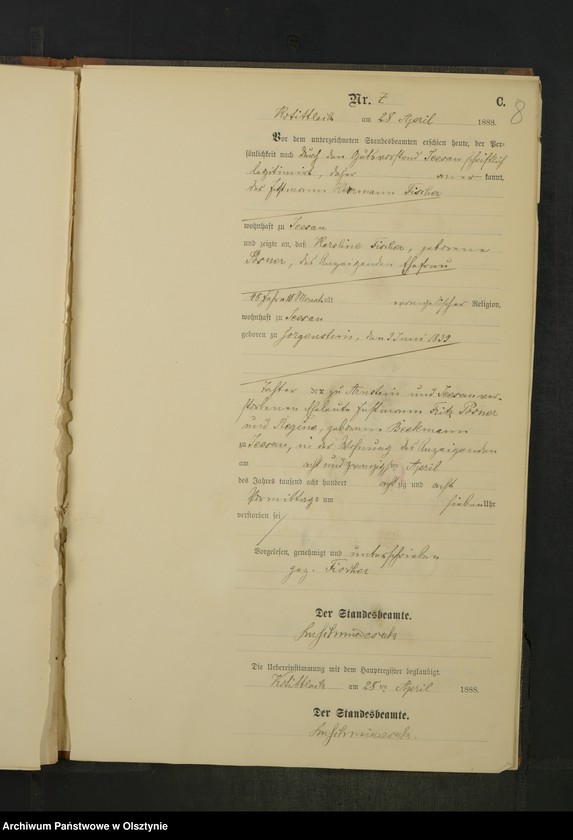 Nr. 7 C. 8
am 28 April 1888.
Vor dem unterzeichneten Standesbeamten erschien heute, der Per-
sönlichkeit nach durch den Gutsvorstand Seesau schriftlich
legitimirt, daher kannt,
der Instmann Hermann Fischer
wohnhaft zu Seesau
und zeigte an, daß Karoline Fischer, geborene
Posner, des Anzeigenden Ehefrau
48 Jahre 10 Monat alt evangelischer Religion,
wohnhaft zu Seesau
geboren zu Jorgenstein, den Juni 1839
Tochter der zu Arnstein und Seesau ver-
storbenen Eheleute Instmann Fritz Posner
und Regine, geborene Beekmann
zu Seesau, in der Wohnung des Anzeigenden
am acht und zwanzigsten April
des Jahres tausend acht hundert achtzig und acht
Vormittags um sieben Uhr
verstorben sei
Vorgelesen, genehmigt und unterschrieben
gez. Fischer
Der Standesbeamte.
Die Uebereinstimmung mit dem Hauptregister beglaubigt.
am 28 ten April 1888.
Der Standesbeamte.
Archiwum Państwowe w Olsztynie